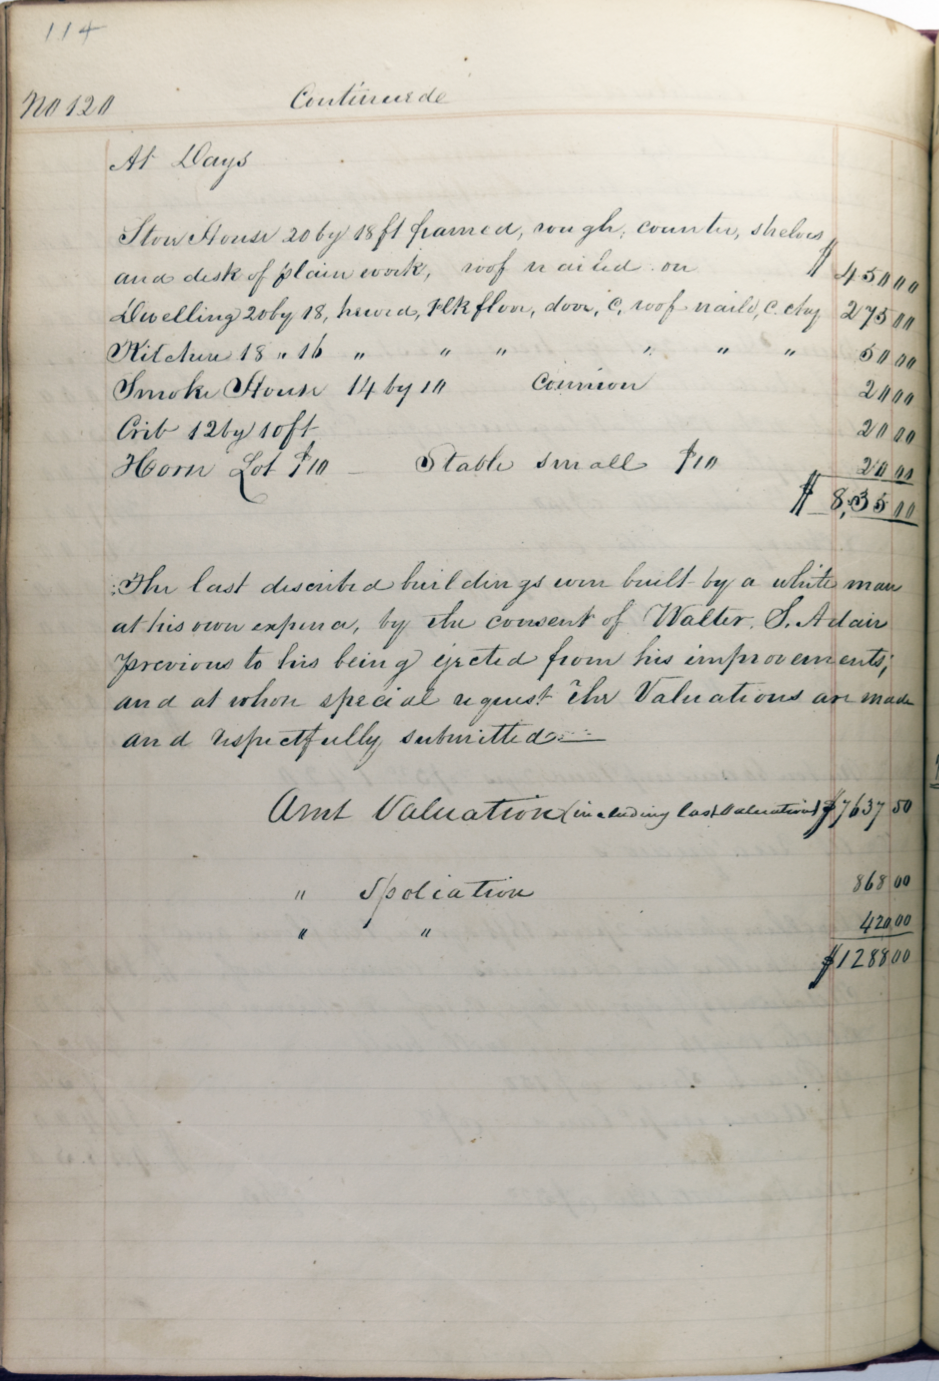 114
No 120 Continued
At Days
Store House 20 by 18 ft framed, rough, counter, shelves
and desk of plain work, roof nailed on $ 450 00
Dwelling 20 by 18, hewed, plk floor, door, C, roof naild, C. chy 275 00
Kitchen 18 " 16 " " " " " " 50 00
Smoke House 14 by 10 Common 20 00
Crib 12 by 10 ft 20 00
Horse Lot $10 — Stable small $10 20 00
$ 8,35 00
The last described buildings were built by a white man
at his own expence, by the consent of Walter. S. Adair
previous to his being ejected from his improvements;
and at whose special request The Valuations are made
and respectfully submitted
Amt Valuation (including last Valuation) $7637 50
" Spoliation 868 00
" " 420 00
$1288 00